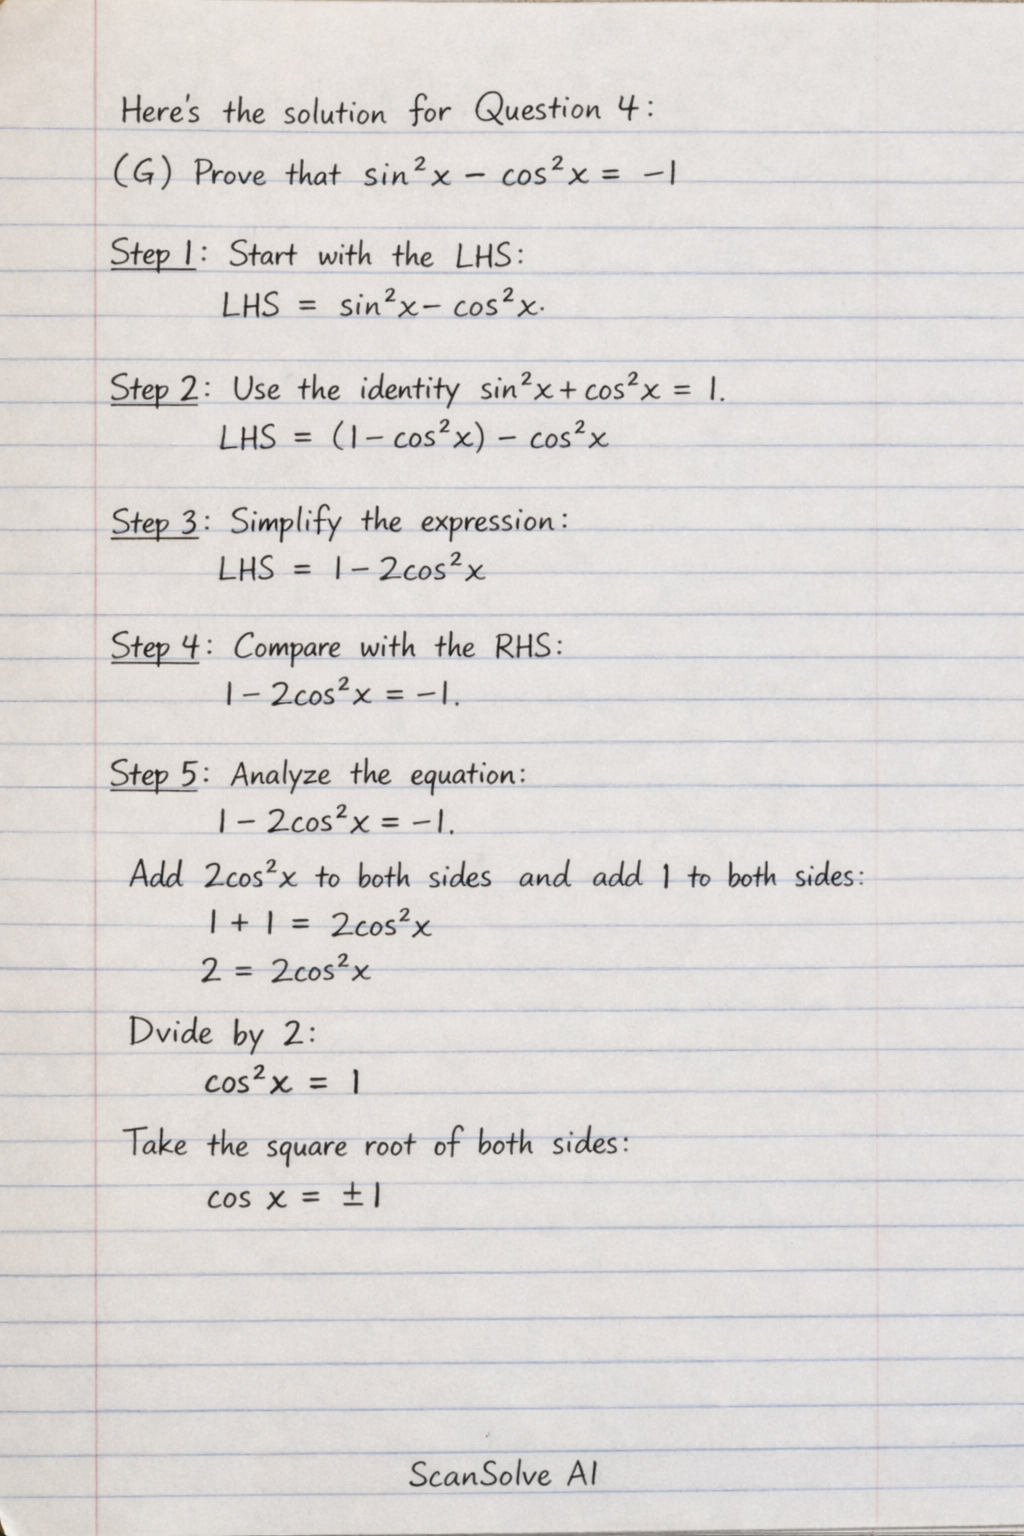 Here's the solution for Question 4:
(G) Prove that sin²x - cos²x = -1
Step 1: Start with the LHS:
LHS = sin²x - cos²x.
Step 2: Use the identity sin²x + cos²x = 1.
LHS = (1 - cos²x) - cos²x
Step 3: Simplify the expression:
LHS = 1 - 2cos²x
Step 4: Compare with the RHS:
1 - 2cos²x = -1.
Step 5: Analyze the equation:
1 - 2cos²x = -1.
Add 2cos²x to both sides and add 1 to both sides:
1 + 1 = 2cos²x
2 = 2cos²x
Dvide by 2:
cos²x = 1
Take the square root of both sides:
cos x = ±1
ScanSolve AI